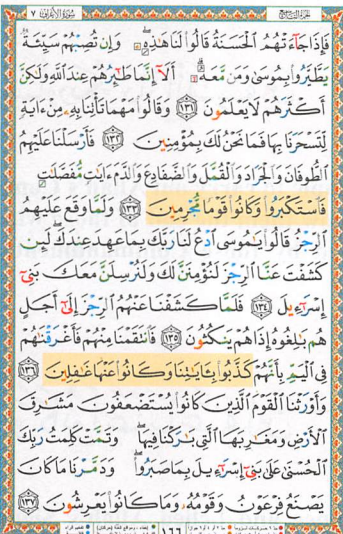 سورة الأعراف ٧
الجزء التاسع
فَإِذَا جَآءَتْهُمُ ٱلْحَسَنَةُ قَالُوا۟ لَنَا هَٰذِهِۦ ۖ وَإِن تُصِبْهُمْ سَيِّئَةٌ
يَطَّيَّرُوا۟ بِمُوسَىٰ وَمَن مَّعَهُۥٓ ۗ أَلَآ إِنَّمَا طَٰٓئِرُهُمْ عِندَ ٱللَّهِ وَلَٰكِنَّ
أَكْثَرَهُمْ لَا يَعْلَمُونَ ١٣١ وَقَالُوا۟ مَهْمَا تَأْتِنَا بِهِۦ مِنْ ءَايَةٍ
لِّتَسْحَرَنَا بِهَا فَمَا نَحْنُ لَكَ بِمُؤْمِنِينَ ١٣٢ فَأَرْسَلْنَا عَلَيْهِمُ
ٱلطُّوفَانَ وَٱلْجَرَادَ وَٱلْقُمَّلَ وَٱلضَّفَادِعَ وَٱلدَّمَ ءَايَٰتٍ مُّفَصَّلَٰتٍ
فَٱسْتَكْبَرُوا۟ وَكَانُوا۟ قَوْمًا مُّجْرِمِينَ ١٣٣ وَلَمَّا وَقَعَ عَلَيْهِمُ
ٱلرِّجْزُ قَالُوا۟ يَٰمُوسَى ٱدْعُ لَنَا رَبَّكَ بِمَا عَهِدَ عِندَكَ ۖ لَئِن
كَشَفْتَ عَنَّا ٱلرِّجْزَ لَنُؤْمِنَنَّ لَكَ وَلَنُرْسِلَنَّ مَعَكَ بَنِىٓ
إِسْرَٰٓءِيلَ ١٣٤ فَلَمَّا كَشَفْنَا عَنْهُمُ ٱلرِّجْزَ إِلَىٰٓ أَجَلٍ
هُم بَٰلِغُوهُ إِذَا هُمْ يَنكُثُونَ ١٣٥ فَٱنتَقَمْنَا مِنْهُمْ فَأَغْرَقْنَٰهُمْ
فِى ٱلْيَمِّ بِأَنَّهُمْ كَذَّبُوا۟ بِـَٔايَٰتِنَا وَكَانُوا۟ عَنْهَا غَٰفِلِينَ ١٣٦
وَأَوْرَثْنَا ٱلْقَوْمَ ٱلَّذِينَ كَانُوا۟ يُسْتَضْعَفُونَ مَشَٰرِقَ
ٱلْأَرْضِ وَمَغَٰرِبَهَا ٱلَّتِى بَٰرَكْنَا فِيهَا ۖ وَتَمَّتْ كَلِمَتُ رَبِّكَ
ٱلْحُسْنَىٰ عَلَىٰ بَنِىٓ إِسْرَٰٓءِيلَ بِمَا صَبَرُوا۟ ۖ وَدَمَّرْنَا مَا كَانَ
يَصْنَعُ فِرْعَوْنُ وَقَوْمُهُۥ وَمَا كَانُوا۟ يَعْرِشُونَ ١٣٧
١٦٦